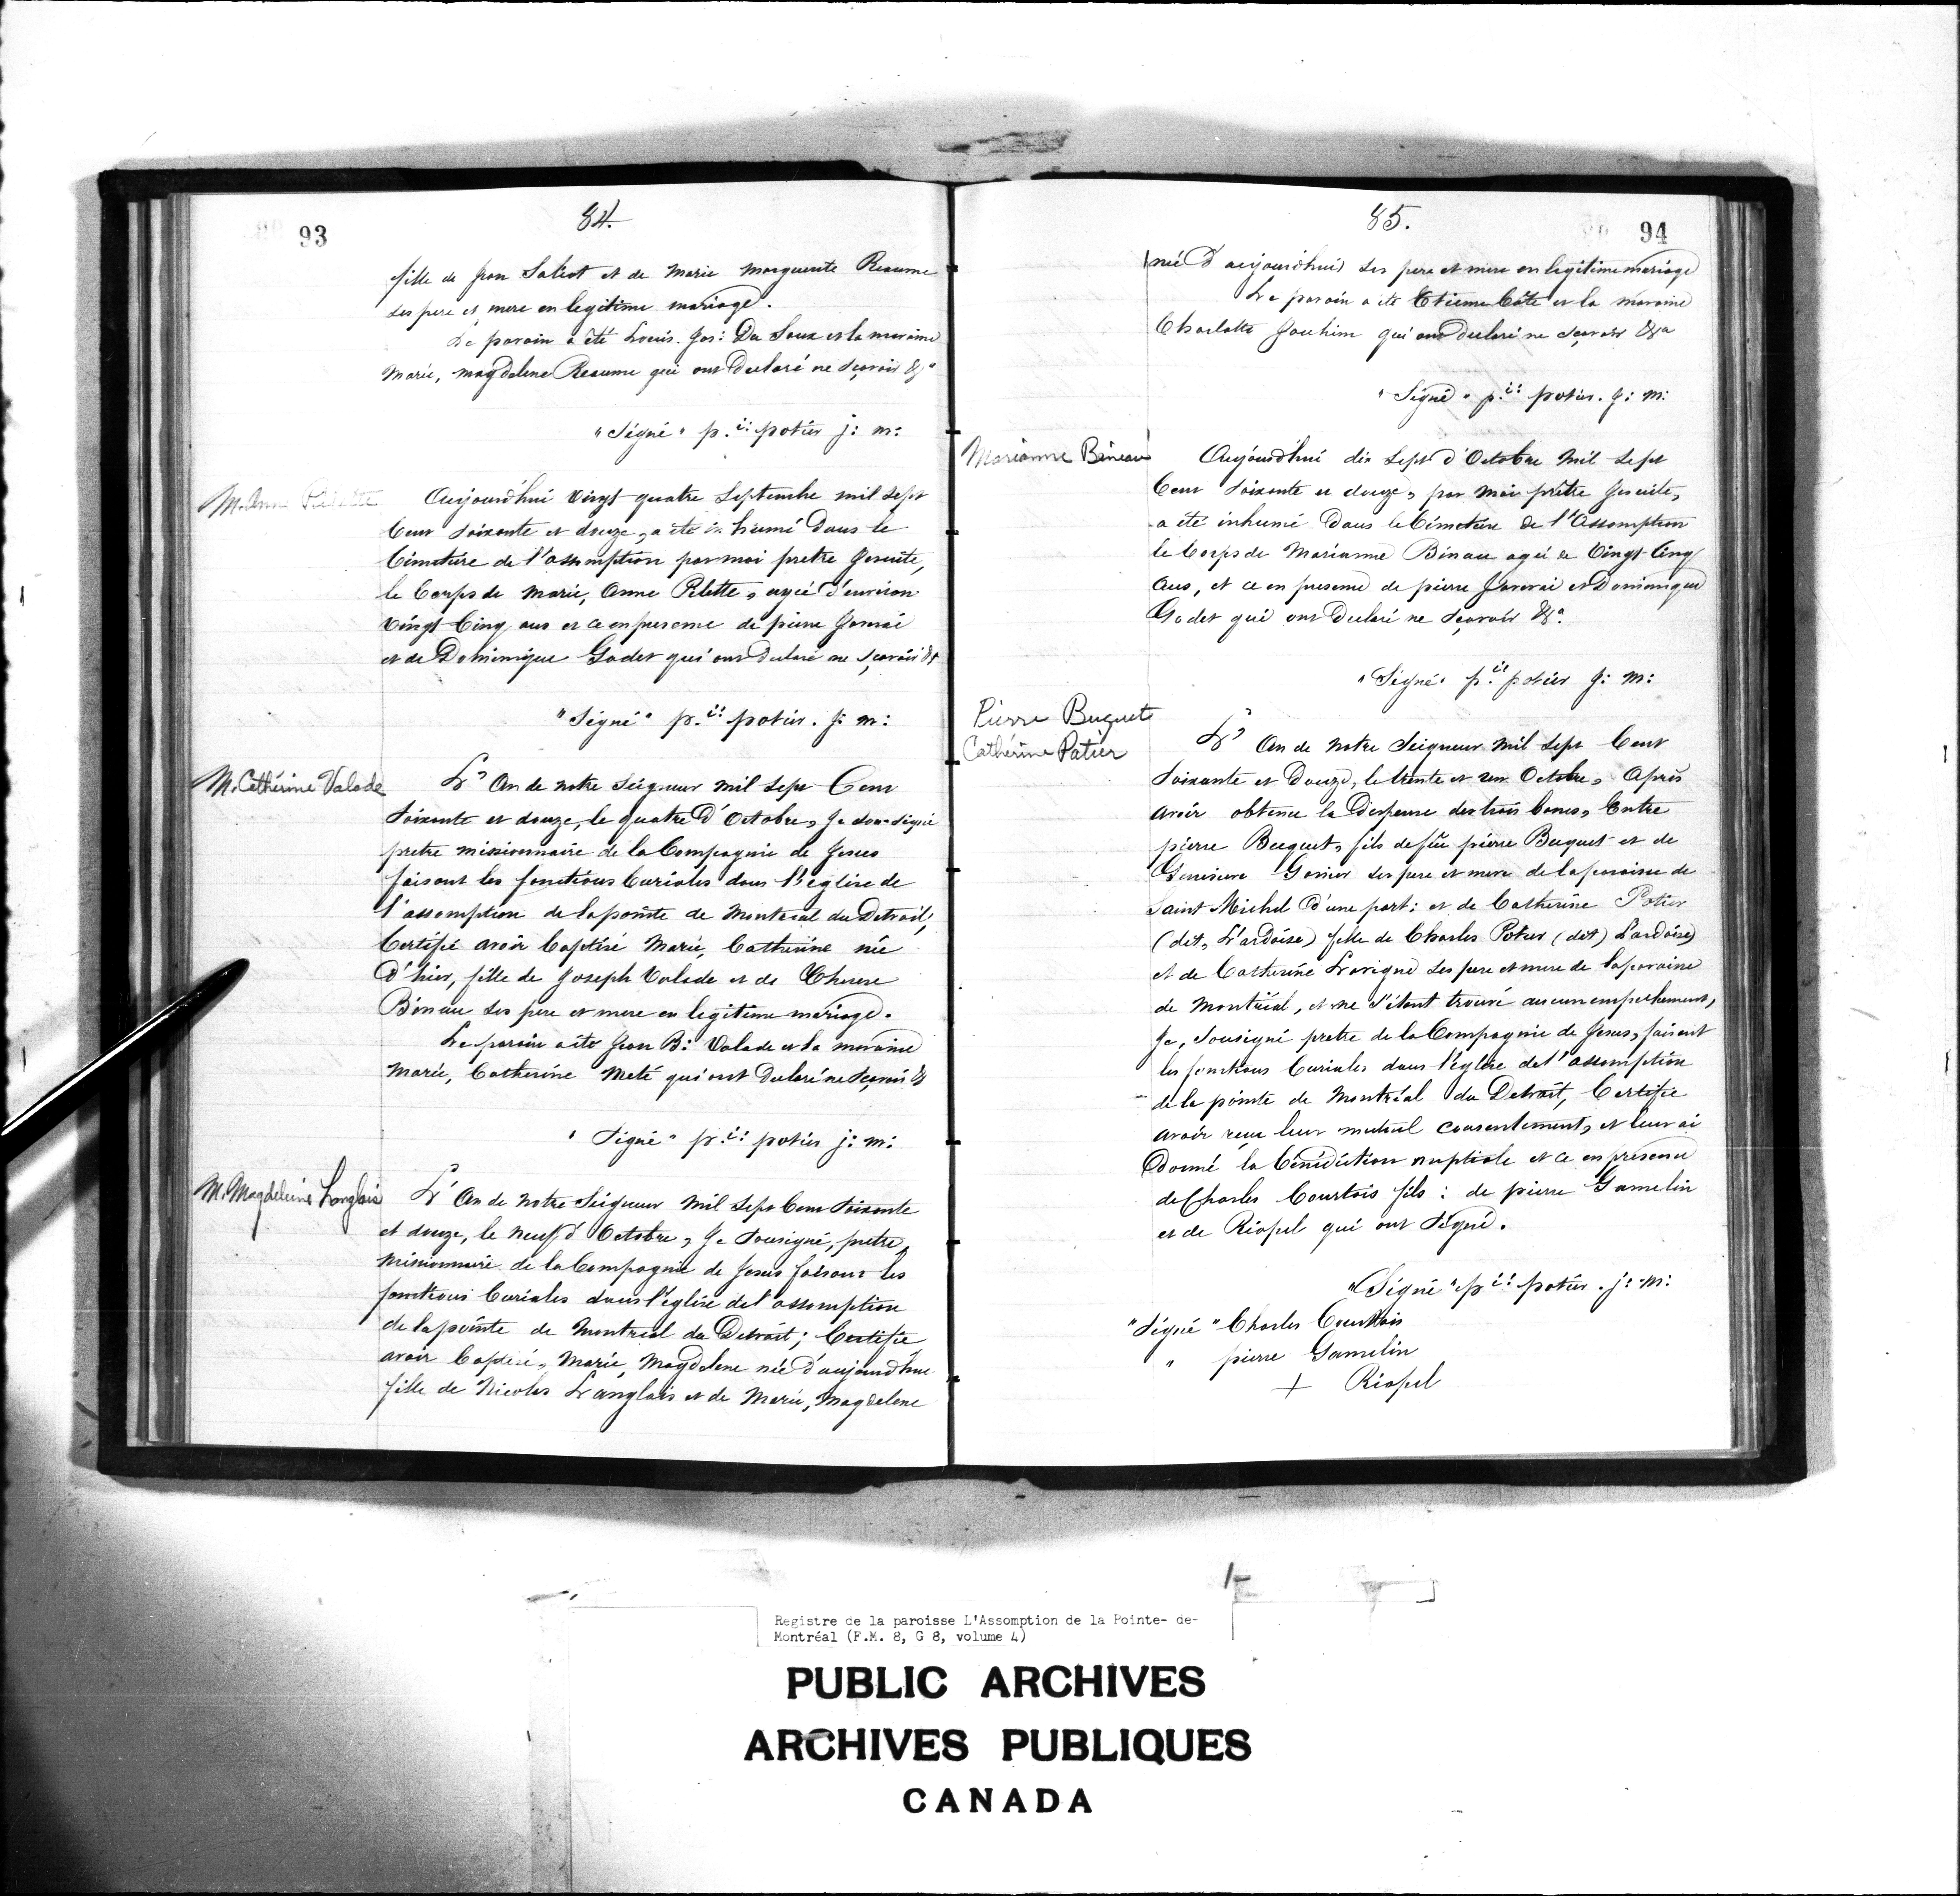 93
84.
fille de Jean Saliot et de Marie Marguerite Reaume
ses pere et mere en legitime mariage.
Le parain a été Louis. Jos: Du Soux et la maraine
Marie, Magdelene Reaume qui ont Declaré ne sçavoir &a
"Signé" p. ii: potier j: m:
M. Anne Pilette
Aujourd'hui vingt quatre Septembre mil sept
Cent soixante et douze, a été in humé Dans le
Cimetière de l'assomption par moi pretre Jesuite,
le Corps de Marie, Anne Pilette, agée d'environ
vingt Cinq ans et ce en presence de pierre
et de Dominique Godet qui ont Declaré ne sçavoir &a
"Signé" p. ii: potier. j: m:
M. Cathérine Valade
L'An de notre Seigneur mil sept Cent
soixante et douze, le quatre D'Octobre, Je sousigné
pretre missionnaire de la Compagnie de Jesus
faisant les fonctions Curiales dans l'église de
l'assomption de la pointe de Montreal du Detroit,
Certifié avoir Baptisé Marie, Catherine née
D'hier, fille de Joseph Valade et de Therese
Binau ses pere et mere en legitime mariage.
Le parain a été Jean B: Valade et la maraine
Marie, Catherine Meté qui ont Declaré ne sçavoir &
"Signé" p. ii: potier j: m:
M. Magdeleine Langlais
L'An de notre Seigneur mil sept Cent soixante
et douze, le neuf d'Octobre, Je sousigné, pretre,
missionnaire de la Compagnie de Jesus faisant les
fonctions Curiales dans l'église de l'assomption
de la pointe de Montreal du Detroit; Certifie
avoir Baptisé, Marie, Magdelene née d'aujourd'hui
fille de Nicolas Langlais et de Marie, Magdelene
85.
94
(née D'aujourd'hui) ses pere et mere en legitime mariage
Le parain a été Etienne Côte et la maraine
Charlotte Jouhim qui ont declaré ne sçavoir &a
"Signé" p. ii: potier. j: m:
Marianne Bineau
Aujourd'hui dix sept d'Octobre mil sept
Cent soixante et douze, par moi prêtre Jesuite,
a été inhumé Dans le Cimetière de l'Assomption
le Corps de Marianne Binau agée de Vingt Cinq
ans, et ce en presence de pierre et Dominique
Godet qui ont Declaré ne sçavoir &a.
"Signé" p. ii potier j: m:
Pierre Buquet
Cathérine Patier
L'An de notre Seigneur mil sept Cent
soixante et Douze, le trente et un Octobre, Après
avoir obtenu la Dispense des trois bancs, Entre
pierre Buquet, fils de feu pierre Buquet et de
Genevieve Garier ses pere et mere de la paroisse de
Saint Michel d'une part: et de Catherine Potier
(dit, L'ardoise) fille de Charles Potier (dit) Lardoise)
et de Catherine Lavigne ses pere et mere de la paroisse
de Montréal, et ne s'étant trouvé aucun empechement,
Je, sousigné pretre de la Compagnie de Jesus, faisant
les fonctions Curiales dans l'église de l'assomption
de la pointe de Montréal du Detroit, Certifie
avoir reçu leur mutuel consentement, et leur ai
Donné la Bénédiction nuptiale et ce en presence
de Charles Courtois fils: de pierre Gamelin
et de Riopel qui ont signé.
"Signé" p ii: potier. j: m:
"Signé" Charles Courtois
" pierre Gamelin
+ Riopel
Registre de la paroisse L'Assomption de la Pointe- de-
Montréal (F.M. 8, G 8, volume 4)
PUBLIC ARCHIVES
ARCHIVES PUBLIQUES
CANADA